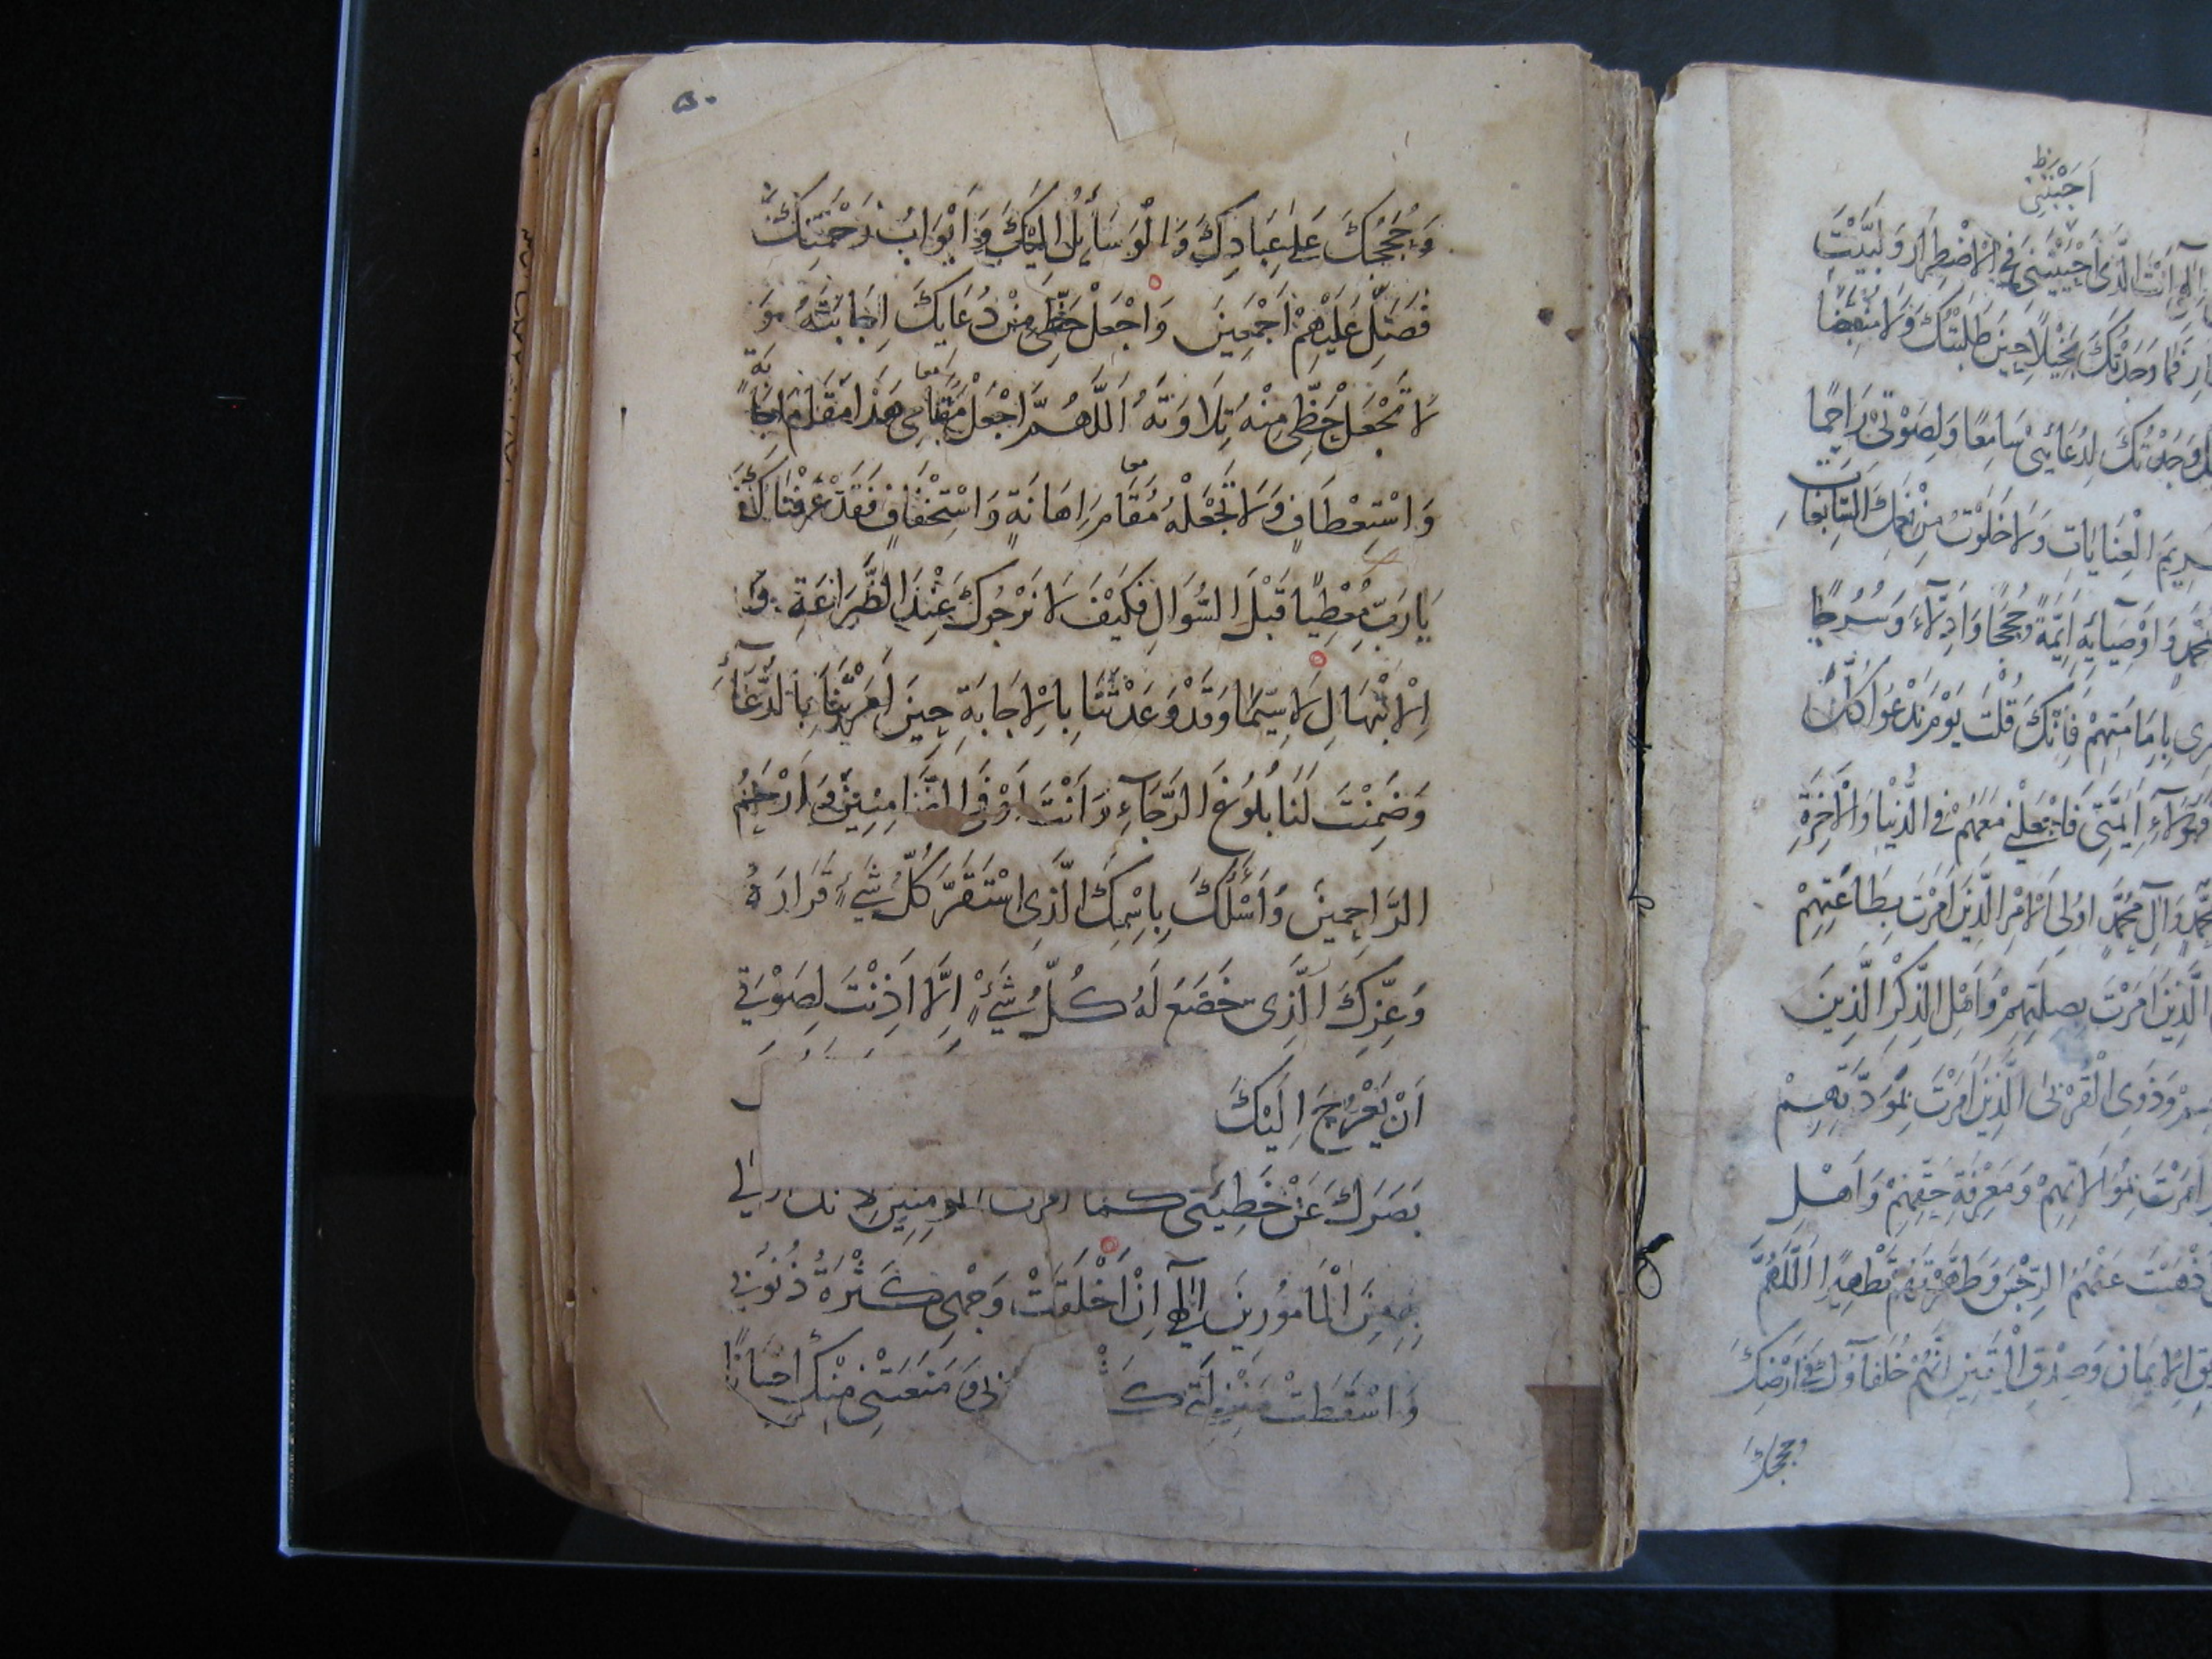 ٥٠
وَحُجَجُكَ عَلٰى عِبَادِكَ وَالْوَسَائِلُ اِلَيْكَ وَاَبْوَابُ رَحْمَتِكَ
فَصَلِّ عَلَيْهِمْ اَجْمَعِينَ وَاجْعَلْ حَظِّي مِنْ دُعَايِكَ اِجَابَتَهُ وَ
لَا تَجْعَلْ حَظِّي مِنْهُ تِلَاوَتَهُ اَللَّهُمَّ اجْعَلْ مَقَامِي هَذَا مَقَامَ
وَاسْتِعْطَافٍ وَلَا تَجْعَلْهُ مَقَامَ اِهَانَةٍ وَاسْتِخْفَافٍ فَقَدْ عَرَفْنَاكَ
يَا رَبِّ مُعْطِيًا قَبْلَ السُّوَالِ فَكَيْفَ لَا نَرْجُوكَ عِنْدَ الضَّرَاعَةِ وَ
الْاِبْتِهَالِ لَاسِيَّمَا وَقَدْ وَعَدْتَنَا بِالْاِجَابَةِ حِينَ اَمَرْتَنَا بِالدُّعَآءِ
وَضَمِنْتَ لَنَا بُلُوغَ الرَّجَآءِ وَاَنْتَ اَوْفَى الضَّامِنِينَ وَاَرْحَمُ
الرَّاحِمِينَ وَاَسْئَلُكَ بِاسْمِكَ الَّذِي اسْتَقَرَّ كُلُّ شَيْءٍ قَرَارَهُ
وَعِزِّكَ الَّذِي خَضَعَ لَهُ كُلُّ شَيْءٍ اِلَّا اَذِنْتَ لِصَوْتِي
اَنْ يَعْرُجَ اِلَيْكَ
بَصَرَكَ عَنْ خَطِيئَتِي كَمَا اَمَرْتَ الْمُومِنِينَ
مِنَ الْمَامُورِينَ اِلٰهِي اِنْ اَخْلَقَتْ وَجْهِي كَثْرَةُ ذُنُوبِي
وَاسْقَطَتْ مَنْزِلَتِي وَمَنَعَتْنِي مِنْكَ
اَجَبْتَنِي
اَنْتَ الَّذِي اَجَبْتَنِي فِي الْاِضْطِرَارِ وَلَبَّيْتَ
فَمَا وَجَدْتُكَ بَخِيلًا حِينَ طَلَبْتُكَ وَلَا مُنْقَبِضًا
وَجَدْتُكَ لِدُعَائِي سَامِعًا وَلِصَوْتِي رَاحِمًا
الْعِنَايَاتِ وَلَا خَلَوْتُ مِنْ نِعَمِكَ السَّابِغَاتِ
وَاَوْصِيَائِهِ اَئِمَّةً وَحُجَجًا وَاَدِلَّاءَ وَسُرُجًا
بِاِمَامَتِهِمْ فَاِنَّكَ قُلْتَ يَوْمَ نَدْعُوا كُلَّ
هَؤُلَآءِ اَئِمَّتِي فَاجْعَلْنِي مَعَهُمْ فِي الدُّنْيَا وَالْاٰخِرَةِ
وَاٰلِ مُحَمَّدٍ اُولِي الْاَمْرِ الَّذِينَ اَمَرْتَ بِطَاعَتِهِمْ
الَّذِينَ اَمَرْتَ بِصِلَتِهِمْ وَاَهْلِ الذِّكْرِ الَّذِينَ
وَذَوِي الْقُرْبَى الَّذِينَ اَمَرْتَ بِمَوَدَّتِهِمْ
اَمَرْتَ بِمُوَالَاتِهِمْ وَمَعْرِفَةِ حَقِّهِمْ وَاَهْلِ
عَنْهُمُ الرِّجْسَ وَطَهَّرْتَهُمْ تَطْهِيرًا اَللَّهُمَّ
الْاِيمَانِ وَصِدْقِ الْيَقِينِ اَنَّهُمْ خُلَفَآؤُكَ فِي اَرْضِكَ
وَحُجَجُكَ